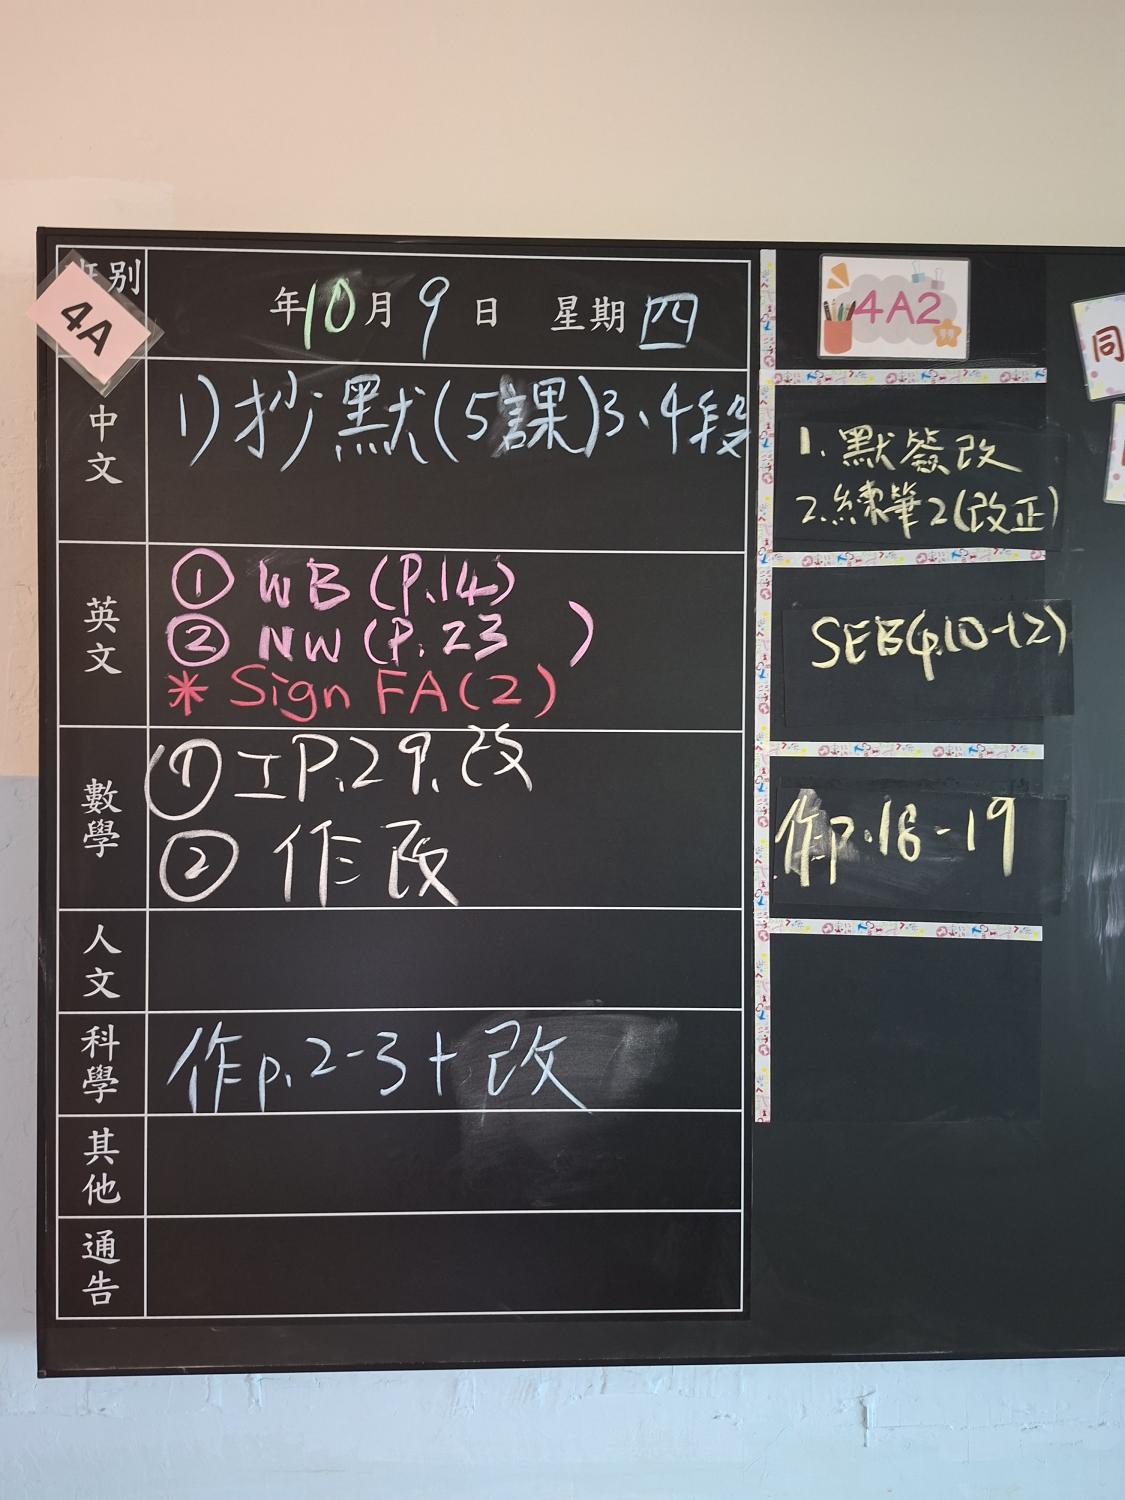 班别
4A
年10月9日 星期四
中文
1)抄默(5課)3、4段
英文
① WB (P.14)
② NW (P.23 )
* Sign FA(2)
數學
① 工P.29.改
② 作改
人文
科學
作p.2-3+改
其他
通告
4A2
1.默簽改
2.練筆2(改正)
SEB(p.10-12)
作p.18-19
同